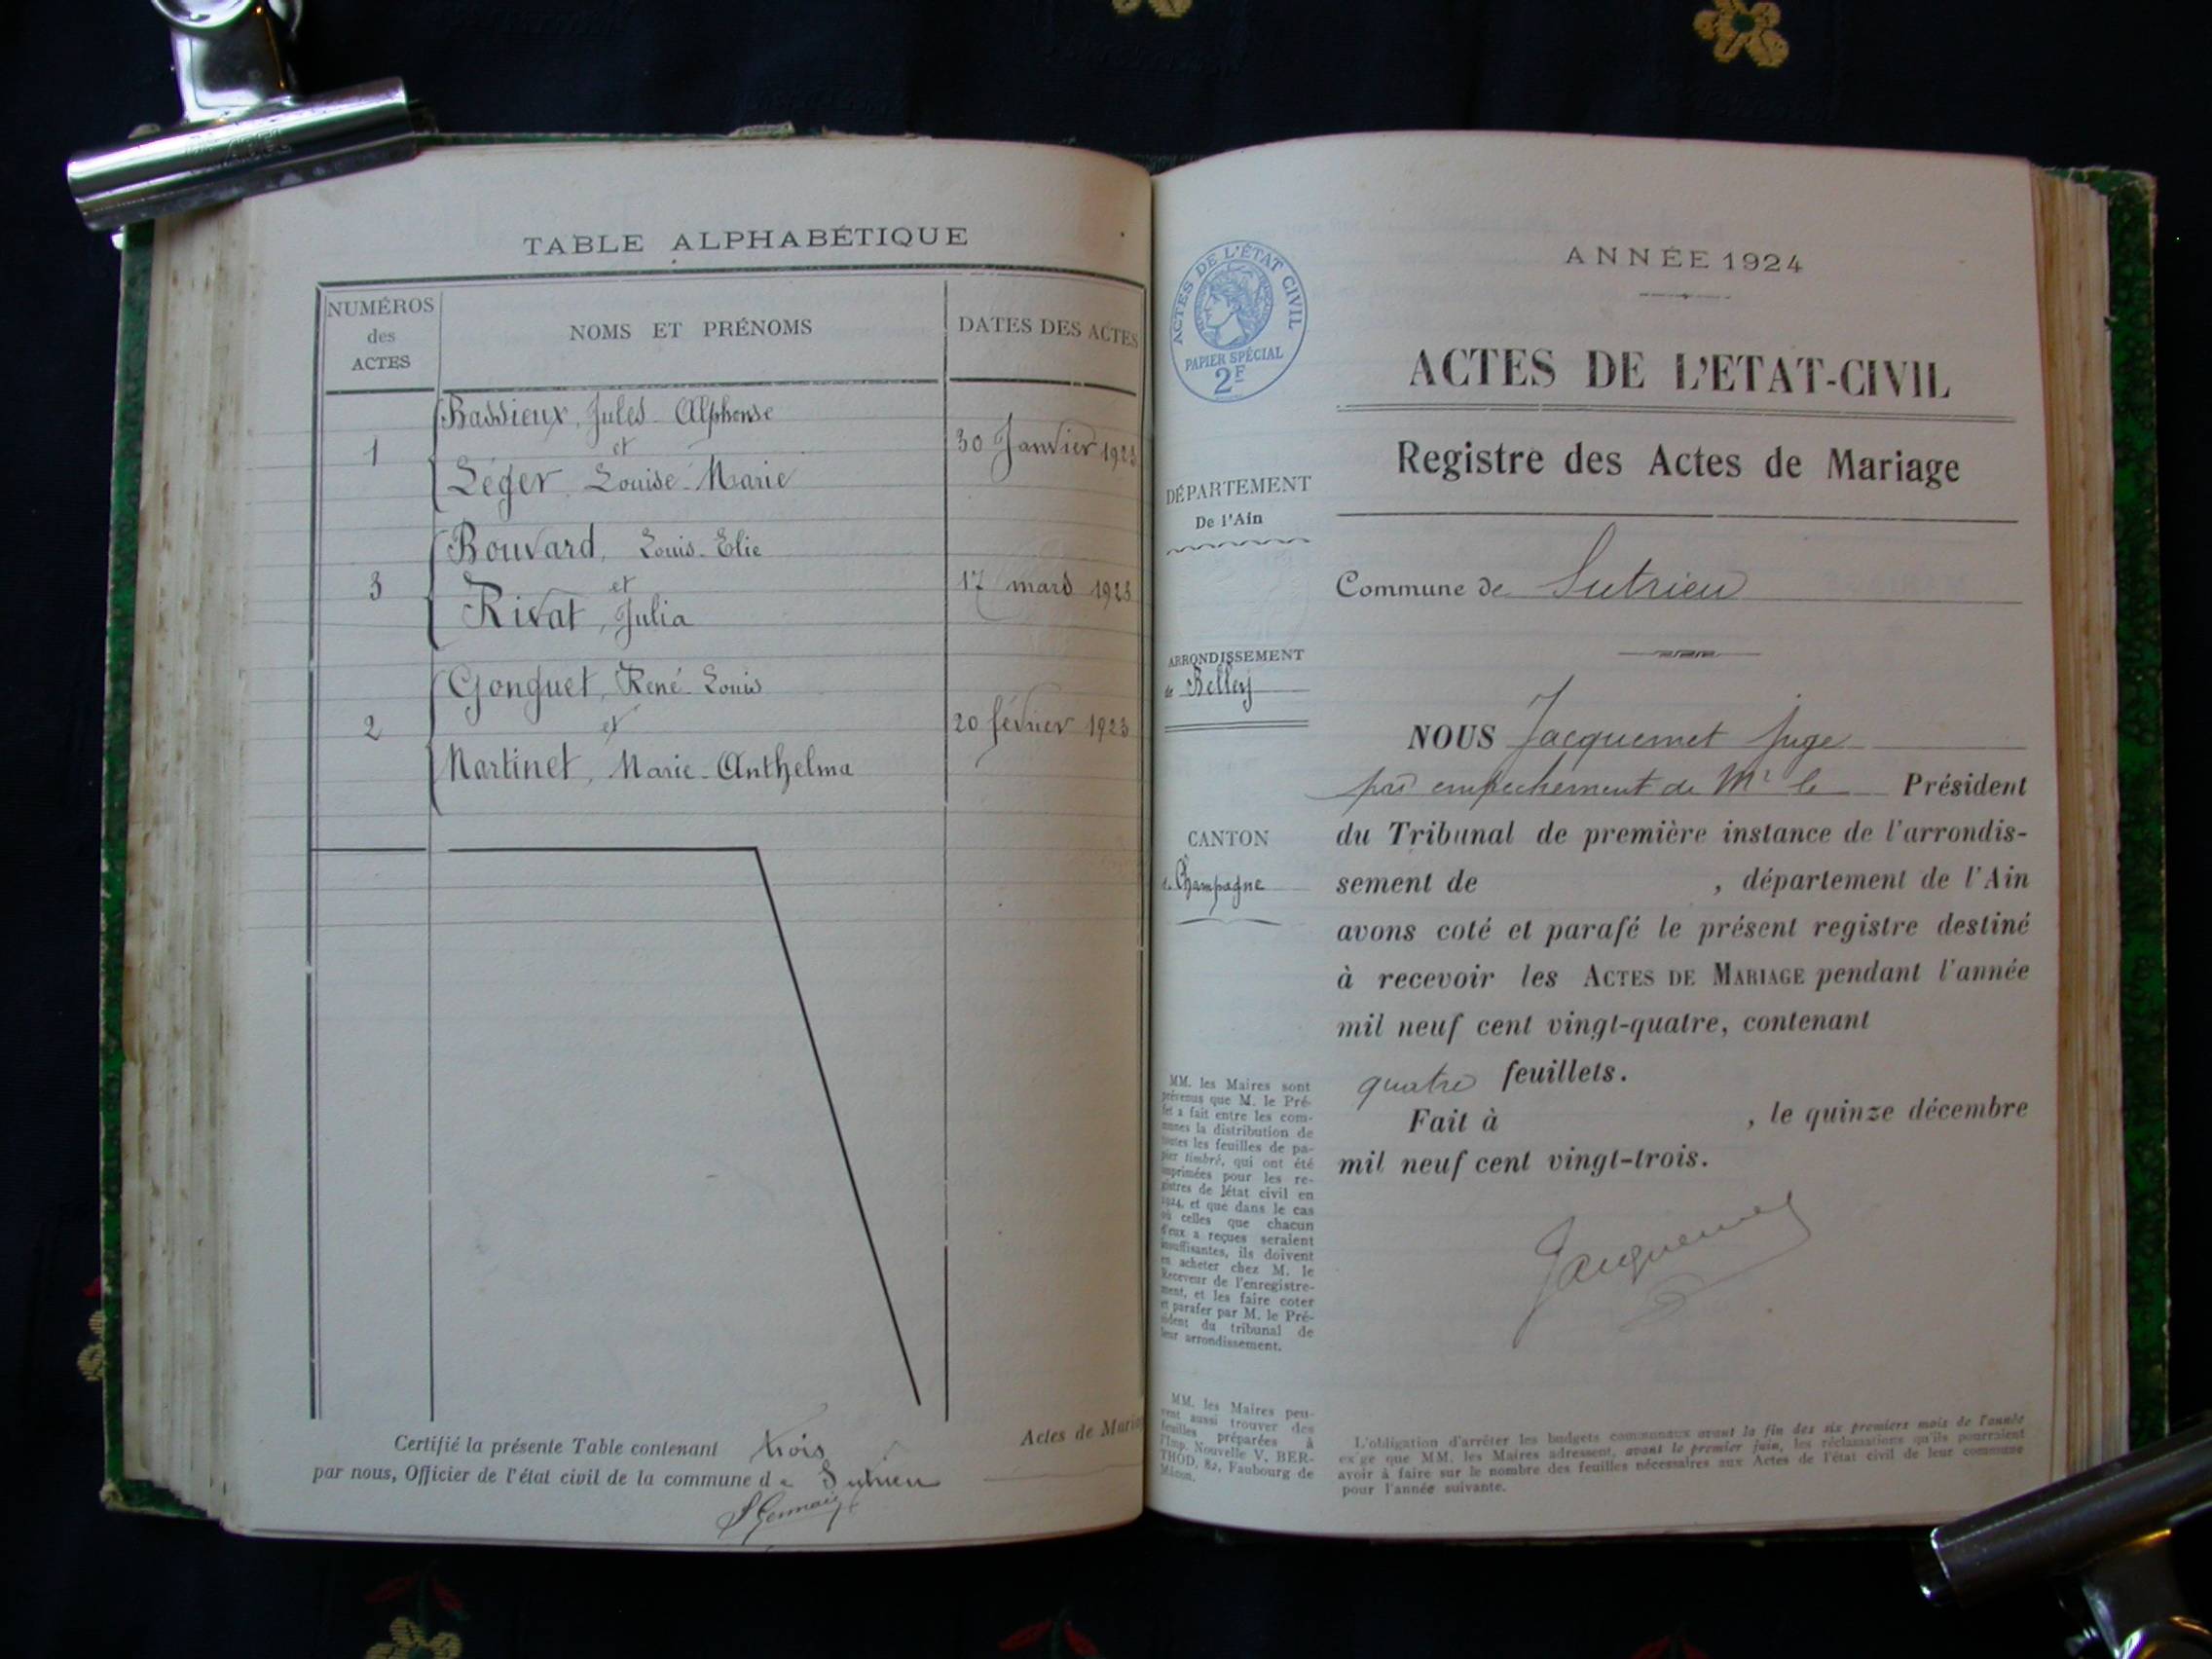 TABLE ALPHABÉTIQUE
NUMÉROS
des
ACTES
NOMS ET PRÉNOMS
DATES DES ACTES
Bassieux, Jules Alphonse
1
et
30 Janvier 1923
Léger, Louise-Marie
Bouvard, Louis-Elie
3
et
17 mars 1923
Rivat, Julia
Gonguet, René-Louis
2
et
20 février 1923
Martinet, Marie-Anthelma
Certifié la présente Table contenant trois
Actes de Mariag
par nous, Officier de l'état civil de la commune de Sutrieu
ACTES DE L'ÉTAT CIVIL
PAPIER SPÉCIAL
2F
DÉPARTEMENT
De l'Ain
ARRONDISSEMENT
de Belley
CANTON
de Champagne
MM. les Maires sont
prévenus que M. le Pré-
fet a fait entre les com-
munes la distribution de
toutes les feuilles de pa-
pier timbré, qui ont été
imprimées pour les re-
gistres de létat civil en
1924, et que dans le cas
où celles que chacun
d'eux a reçues seraient
insuffisantes, ils doivent
en acheter chez M. le
Receveur de l'enregistre-
ment, et les faire coter
et parafer par M. le Pré-
sident du tribunal de
leur arrondissement.
MM. les Maires peu-
vent aussi trouver des
feuilles préparées à
l'Imp. Nouvelle V. BER-
THOD, 82, Faubourg de
Mâcon.
ANNÉE 1924
ACTES DE L'ETAT-CIVIL
Registre des Actes de Mariage
Commune de Sutrieu
NOUS Jacquemet Juge
par empêchement de Mr le Président
du Tribunal de première instance de l'arrondis-
sement de , département de l'Ain
avons coté et parafé le présent registre destiné
à recevoir les ACTES DE MARIAGE pendant l'année
mil neuf cent vingt-quatre, contenant
quatre feuillets.
Fait à , le quinze décembre
mil neuf cent vingt-trois.
Jacquemet
L'obligation d'arrêter les budgets communaux avant la fin des six premiers mois de l'année
exige que MM. les Maires adressent, avant le premier juin, les réclamations qu'ils pourraient
avoir à faire sur le nombre des feuilles nécessaires aux Actes de l'état civil de leur commune
pour l'année suivante.